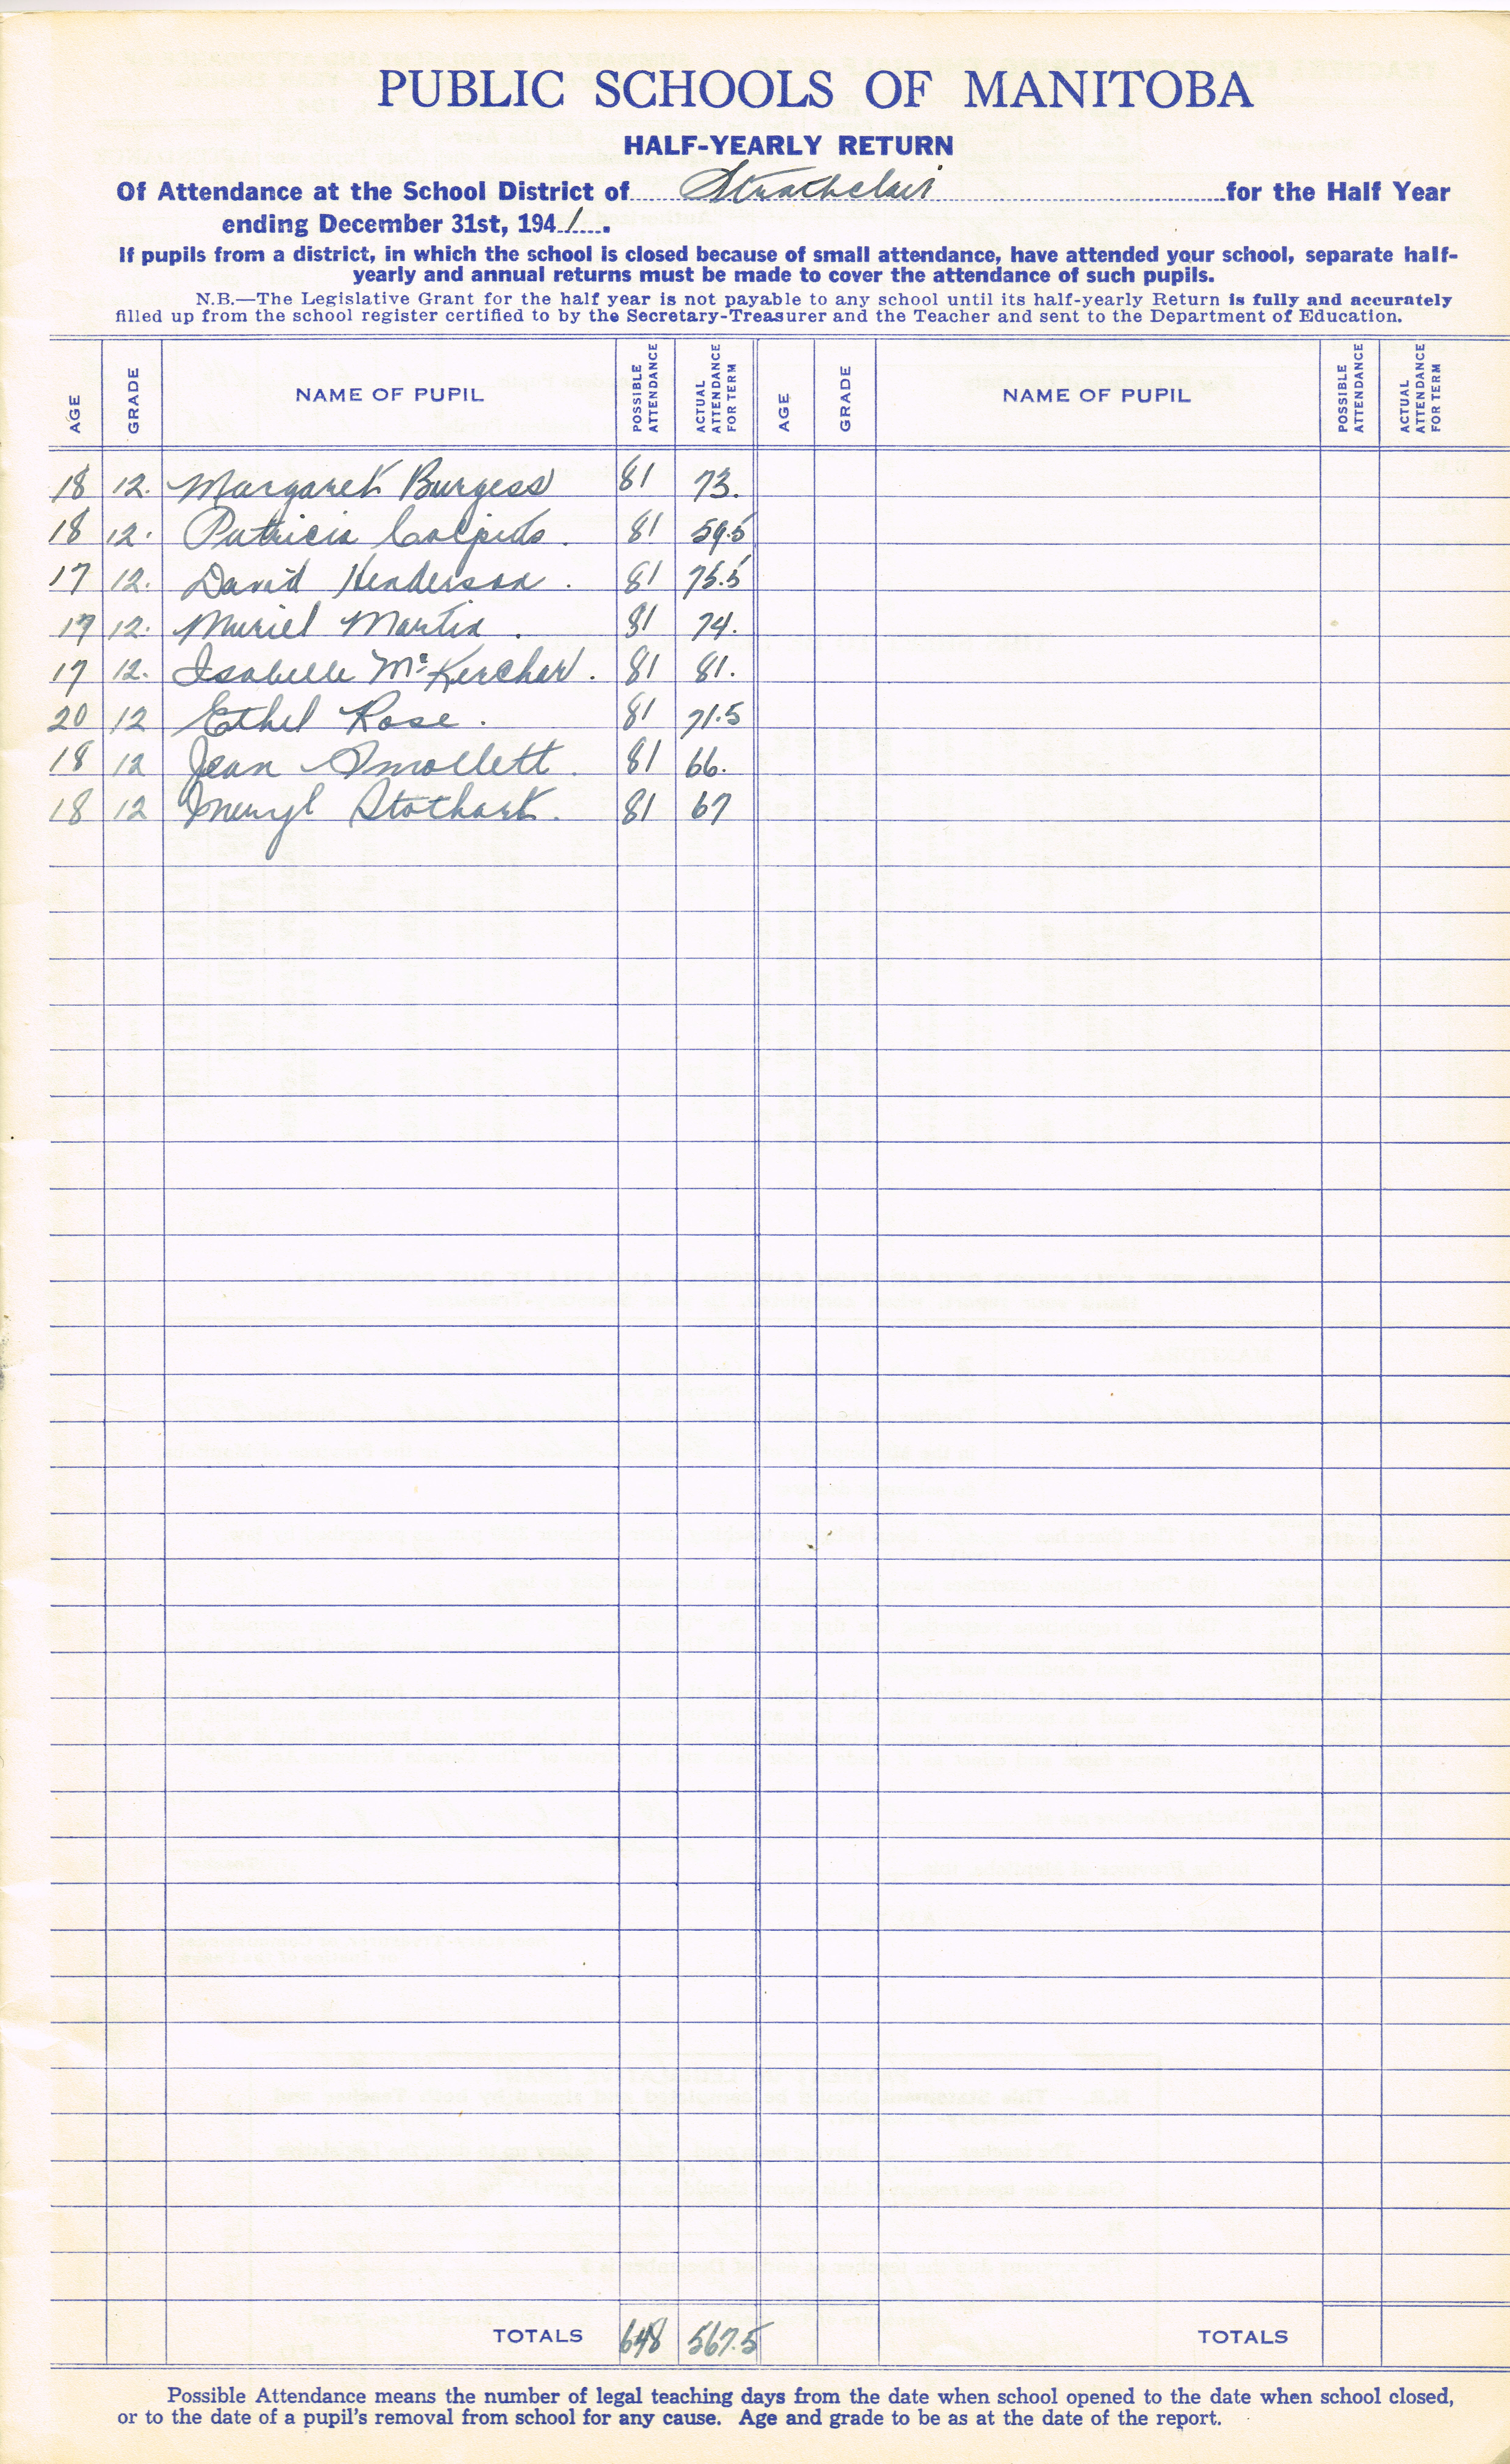 PUBLIC SCHOOLS OF MANITOBA
HALF-YEARLY RETURN
Of Attendance at the School District of Strathclair for the Half Year
ending December 31st, 1941.
If pupils from a district, in which the school is closed because of small attendance, have attended your school, separate half-
yearly and annual returns must be made to cover the attendance of such pupils.
N.B.—The Legislative Grant for the half year is not payable to any school until its half-yearly Return is fully and accurately
filled up from the school register certified to by the Secretary-Treasurer and the Teacher and sent to the Department of Education.
AGE GRADE NAME OF PUPIL POSSIBLE ATTENDANCE ACTUAL ATTENDANCE FOR TERM AGE GRADE NAME OF PUPIL POSSIBLE ATTENDANCE ACTUAL ATTENDANCE FOR TERM
18 12. Margaret Burgess 81 73.
18 12. Patricia 81 59.5
17 12. David Henderson. 81 75.5
17 12. Muriel Martin. 81 74.
17 12. Isabelle McKerchar. 81 81.
20 12 Ethel Rose. 81 71.5
18 12 Jean Smollett. 81 66.
18 12 Stothart. 81 67
TOTALS 648 567.5 TOTALS
Possible Attendance means the number of legal teaching days from the date when school opened to the date when school closed,
or to the date of a pupil's removal from school for any cause. Age and grade to be as at the date of the report.